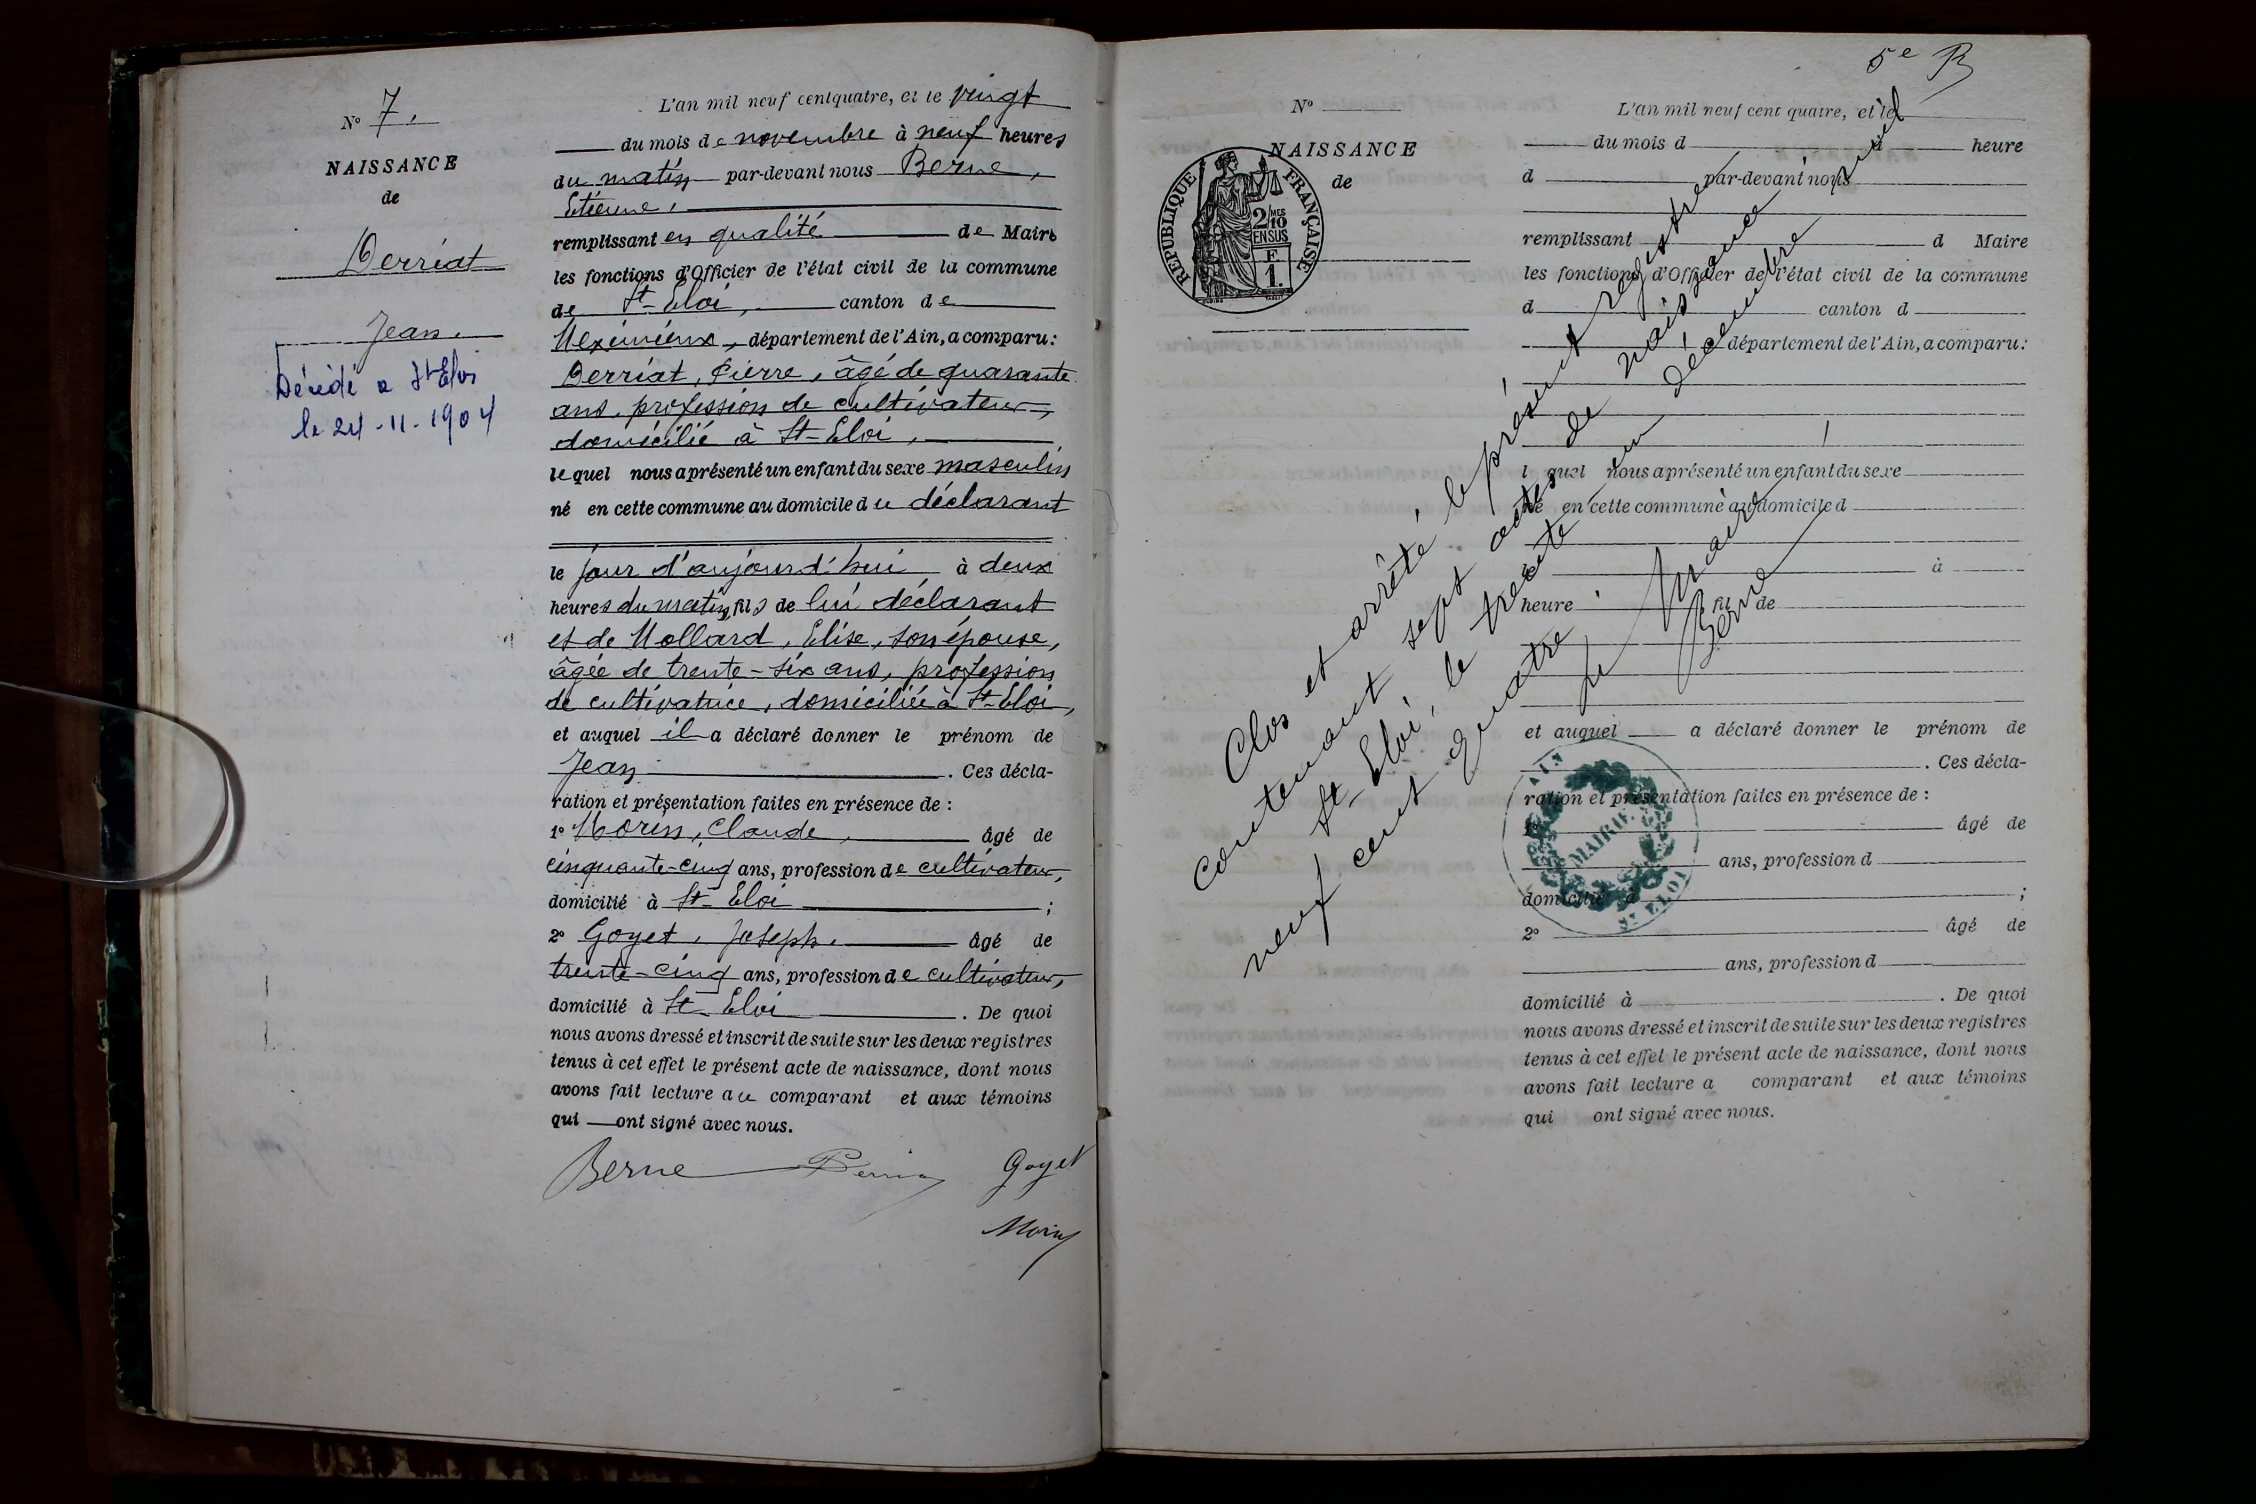 N° 7.
NAISSANCE
de
Derriat
Jean.
Décédé a St Eloi
le 24-11-1904
L'an mil neuf cent quatre, et le vingt
du mois de novembre à neuf heures
du matin par-devant nous Berne,
Etienne,
remplissant en qualité de Maire
les fonctions d'Officier de l'état civil de la commune
de St-Eloi, canton de
Meximieux, département de l'Ain, a comparu:
Derriat, Pierre, âgé de quarante
ans, profession de cultivateur,
domicilié à St-Eloi,
lequel nous a présenté un enfant du sexe masculin
né en cette commune au domicile du déclarant
le jour d'aujourd'hui à deux
heures du matin, fils de lui déclarant
et de Mollard, Elise, son épouse,
âgée de trente-six ans, profession
de cultivatrice, domiciliée à St-Eloi,
et auquel il a déclaré donner le prénom de
Jean. Ces décla-
ration et présentation faites en présence de :
1° Morin, Claude, âgé de
cinquante-cinq ans, profession de cultivateur,
domicilié à St-Eloi ;
2° Goyet, Joseph, âgé de
trente-cinq ans, profession de cultivateur,
domicilié à St-Eloi. De quoi
nous avons dressé et inscrit de suite sur les deux registres
tenus à cet effet le présent acte de naissance, dont nous
avons fait lecture au comparant et aux témoins
qui ont signé avec nous.
Berne Goyet
Morin
5e
N°
NAISSANCE
de
REPUBLIQUE FRANÇAISE
2/10 MES
EN SUS
F
1.
L'an mil neuf cent quatre, et le
du mois d à heure
d par-devant nous
remplissant d Maire
les fonctions d'Officier de l'état civil de la commune
d canton d
département de l'Ain, a comparu:
l quel nous a présenté un enfant du sexe
né en cette commune au domicile d
le à
heure fil de
et auquel a déclaré donner le prénom de
. Ces décla-
ration et présentation faites en présence de :
1° âgé de
ans, profession d
domicilié à ;
2° âgé de
ans, profession d
domicilié à . De quoi
nous avons dressé et inscrit de suite sur les deux registres
tenus à cet effet le présent acte de naissance, dont nous
avons fait lecture a comparant et aux témoins
qui ont signé avec nous.
Clos et arrêté le présent registre
contenant sept actes de naissance
St-Eloi, le trente un décembre mil
neuf cent quatre.
le Maire
Berne
AIN
MAIRIE
ST ELOI